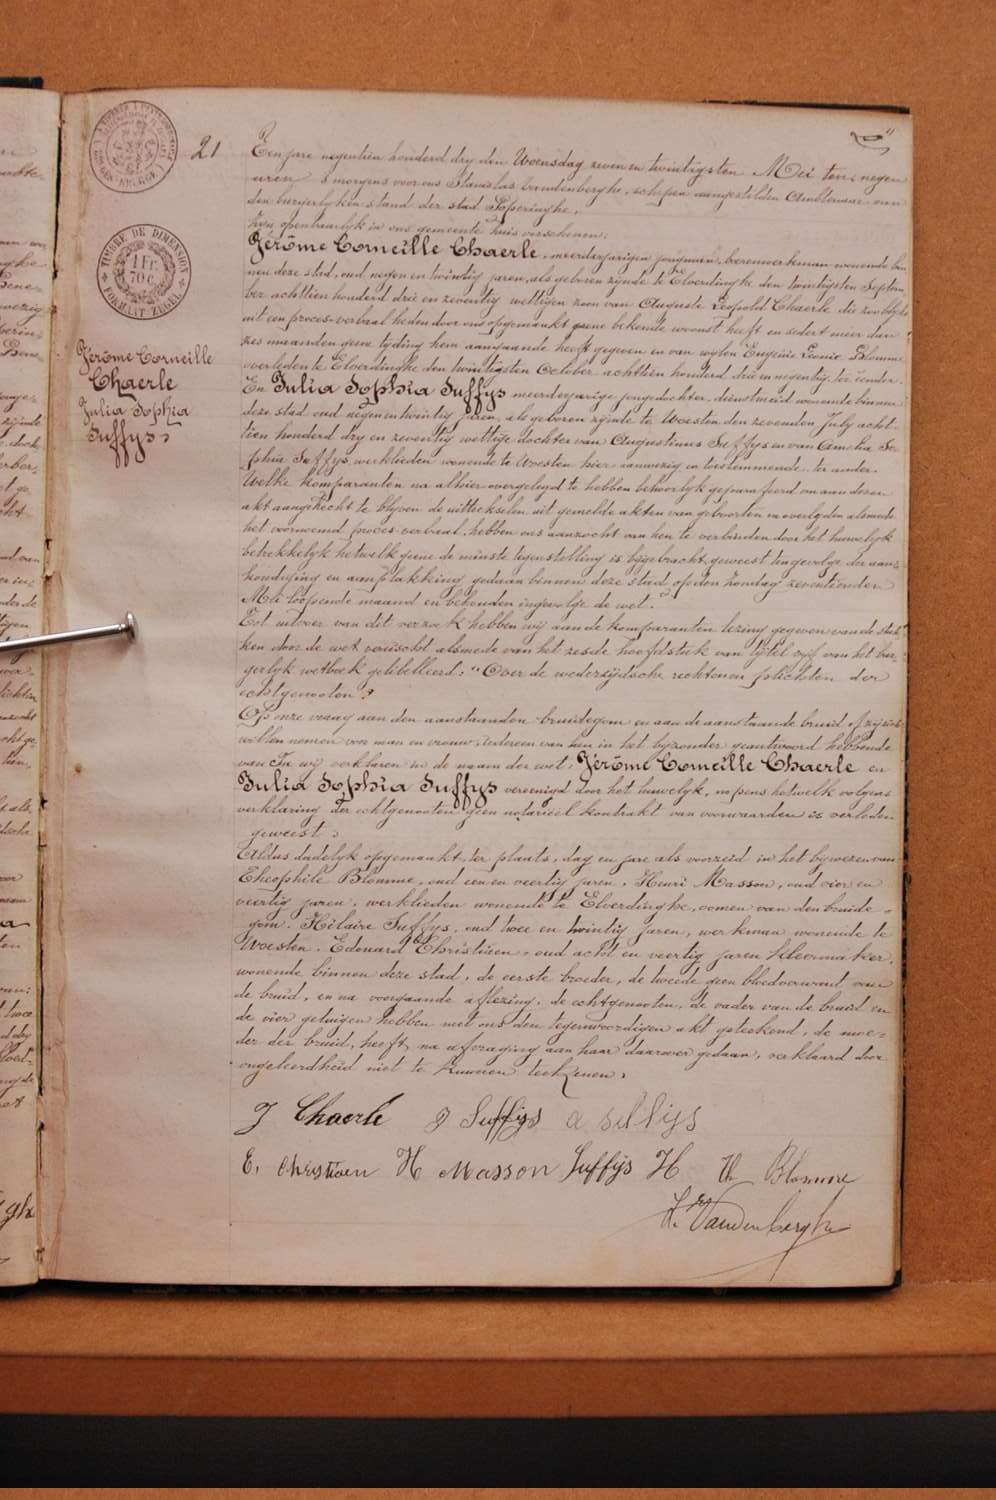 TIMBRE DE DIMENSION
1 Fr.
70 c.
FORMAAT ZEGEL
Jérôme Corneille
Chaerle
Julia Sophia
Suffys
21
Een jare negentien honderd dry den Woensdag zeven en twintigsten Mei ten negen
uren 's morgens voor ons Stanislas Vandenberghe, schepen aangestelden Ambtenaar van
den burgerlyken stand der stad Poperinghe,
Zyn openbaarlyk in ons gemeente huis verschenen:
Jérôme Corneille Chaerle, meerderjarigen jongman, barenwerkman wonende bin
nen deze stad, oud negen en twintig jaren, als geboren zynde te Elverdinghe den twintigsten Septem
ber achttien honderd drie en zeventig wettigen zoon van Auguste Léopold Chaerle die zooblykt
uit een proces-verbaal heden door ons opgemaakt geene bekende woonst heeft en sedert meer dan
zes maanden geene tyding hem aangaande heeft gegeven en van wylen Eugénie Léonie Blomme
overleden te Elverdinghe den twintigsten October achttien honderd drie en negentig, ter eender.
En Julia Sophia Suffys meerderjarige jongedochter, dienstmeid wonende binnen
deze stad oud negen en twintig jaren, als geboren zynde te Woesten den zevenden July acht-
tien honderd dry en zeventig wettige dochter van Augustinus Suffys en van Amelia So-
phia Suffys, werklieden wonende te Woesten hier aanwezig en toestemmende ter ander.
Welke komparanten na alhier overgelegd te hebben behoorlyk geparafeerd om aan dezen
akt aangehecht te blyven de uittrekselen uit gemelde akten van geboorten en overlyden alsmede
het voornoemd proces-verbaal, hebben ons aanzocht van hen te verbinden door het huwelyk
betrekkelyk hetwelk geene de minste tegenstelling is bygebracht geweest ten gevolge der aan-
kondiging en aanplakking gedaan binnen deze stad op den Zondag zeventienden
Mei loopende maand en behouden ingevolge de wet.
Tot uitvoer van dit verzoek hebben wy aan de komparanten lezing gegeven van de stuk
ken door de wet vereischt alsmede van het zesde hoofdstuk van tytel vyf van het bur-
gerlyk wetboek gelibelleerd: "Over de wederzydsche rechten en plichten der
echtgenooten"
Op onze vraag aan den aanstaanden bruidegom en aan de aanstaande bruid of zy zich
willen nemen voor man en vrouw, iedereen van hen in het byzonder geantwoord hebbende
van Ja wy verklaren in de naam der wet, Jérôme Corneille Chaerle en
Julia Sophia Suffys vereenigd door het huwelyk, nopens hetwelk volgens
verklaring der echtgenooten geen notarieel kontrakt van voorwaarden is verleden
geweest;
Aldus dadelyk opgemaakt, ter plaats, dag en jare als voorzeid in het bywezen van
Theophile Blomme, oud een en veertig jaren, Henri Masson, oud vier en
veertig jaren, werklieden wonende te Elverdinghe, oomen van den bruide-
gom. Hilaire Suffys, oud twee en twintig jaren, werkman wonende te
Woesten. Edouard Christiaen, oud acht en veertig jaren kleermaker,
wonende binnen deze stad, de eerste broeder, de tweede geen bloedverwant van
de bruid, en na voorgaande aflezing, de echtgenooten, de vader van de bruid en
de vier getuigen hebben met ons den tegenwoordigen akt geteekend, de moe-
der der bruid, heeft, na afvraging aan haar daarover gedaan, verklaard door
ongeleerdheid niet te kunnen teekenen.
J Chaerle J Suffijs a seffijs
E. Christiaen H Masson Suffijs H Th Blomme
St. Vandenberghe